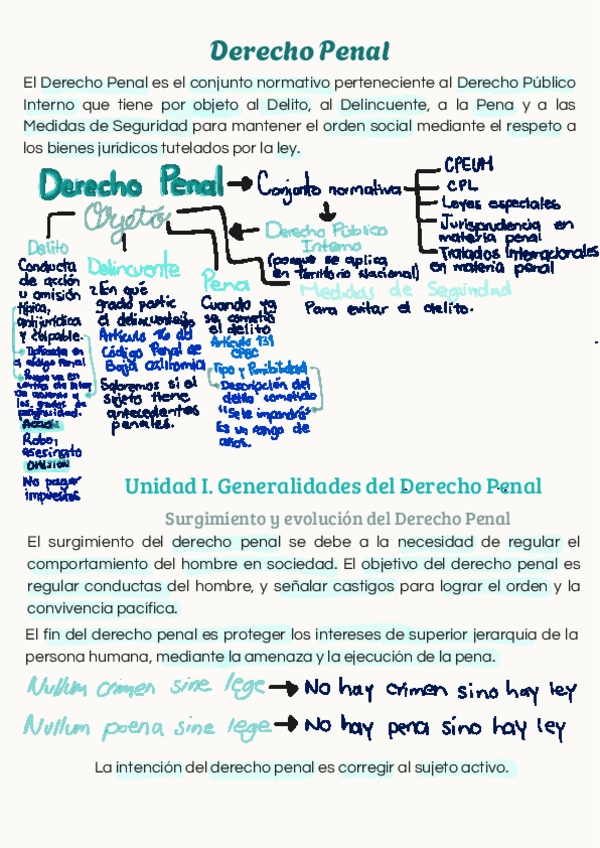 Derecho Penal
El Derecho Penal es el conjunto normativo perteneciente al Derecho Público
Interno que tiene por objeto al Delito, al Delincuente, a la Pena y a las
Medidas de Seguridad para mantener el orden social mediante el respeto a
los bienes jurídicos tutelados por la ley.
Derecho Penal → Conjunto normativo
CPEUM
CPL
Leyes especiales
Jurisprudencia en
materia penal
Tratados Internacionales
en materia penal
Objeto
Derecho Público
Interno
(porque se aplica
en Territorio Nacional)
Delito
Conducta
de acción
u omisión
típica,
antijurídica
y culpable.
Definida en
el código Penal
Porque va en
contra de la ley
de acuerdo a
los grados de
peligrosidad.
Acción
Robo,
asesinato
Omisión
No pagar
impuestos
Delincuente
¿En qué
grado partic
el delincuente?
Artículo 16 del
Código Penal de
Baja California
Sabremos si el
sujeto tiene
antecedentes
penales.
Pena
Cuando ya
se cometió
el delito
Artículo 139
CPBC
Tipo y Punibilidad
Descripción del
delito cometido
"Se le impondrá"
Es un rango de
años.
Medidas de Seguridad
Para evitar el delito.
Unidad I. Generalidades del Derecho Penal
Surgimiento y evolución del Derecho Penal
El surgimiento del derecho penal se debe a la necesidad de regular el
comportamiento del hombre en sociedad. El objetivo del derecho penal es
regular conductas del hombre, y señalar castigos para lograr el orden y la
convivencia pacífica.
El fin del derecho penal es proteger los intereses de superior jerarquía de la
persona humana, mediante la amenaza y la ejecución de la pena.
Nullum crimen sine lege → No hay crimen sino hay ley
Nullum poena sine lege → No hay pena sino hay ley
La intención del derecho penal es corregir al sujeto activo.